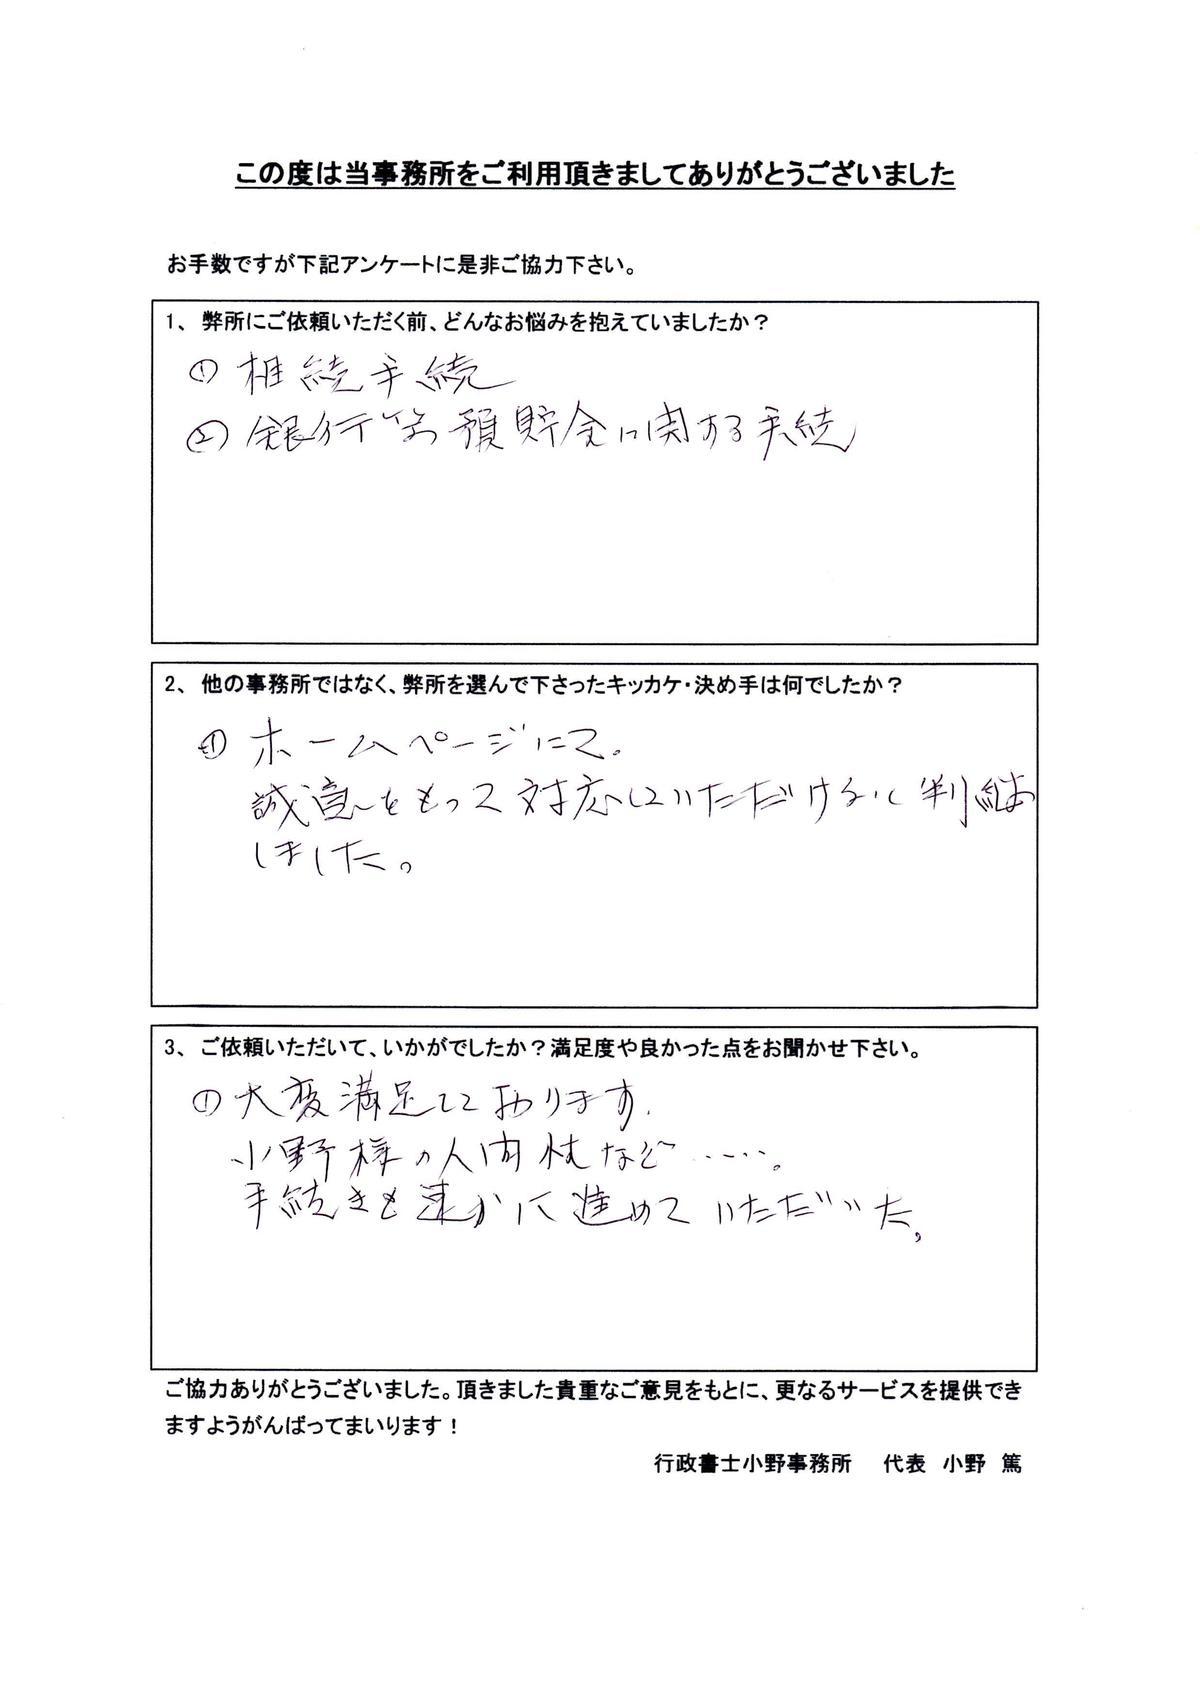 この度は当事務所をご利用頂きましてありがとうございました
お手数ですが下記アンケートに是非ご協力下さい。
1、 弊所にご依頼いただく前、どんなお悩みを抱えていましたか?
① 相続手続
② 銀行等の預貯金に関する手続
2、 他の事務所ではなく、弊所を選んで下さったキッカケ・決め手は何でしたか?
① ホームページにて。
誠意をもって対応していただけると判断
しました。
3、 ご依頼いただいて、いかがでしたか?満足度や良かった点をお聞かせ下さい。
① 大変満足しております。
小野様の人間性など……。
手続きも速かに進めていただいた。
ご協力ありがとうございました。頂きました貴重なご意見をもとに、更なるサービスを提供でき
ますようがんばってまいります!
行政書士小野事務所 代表 小野 篤